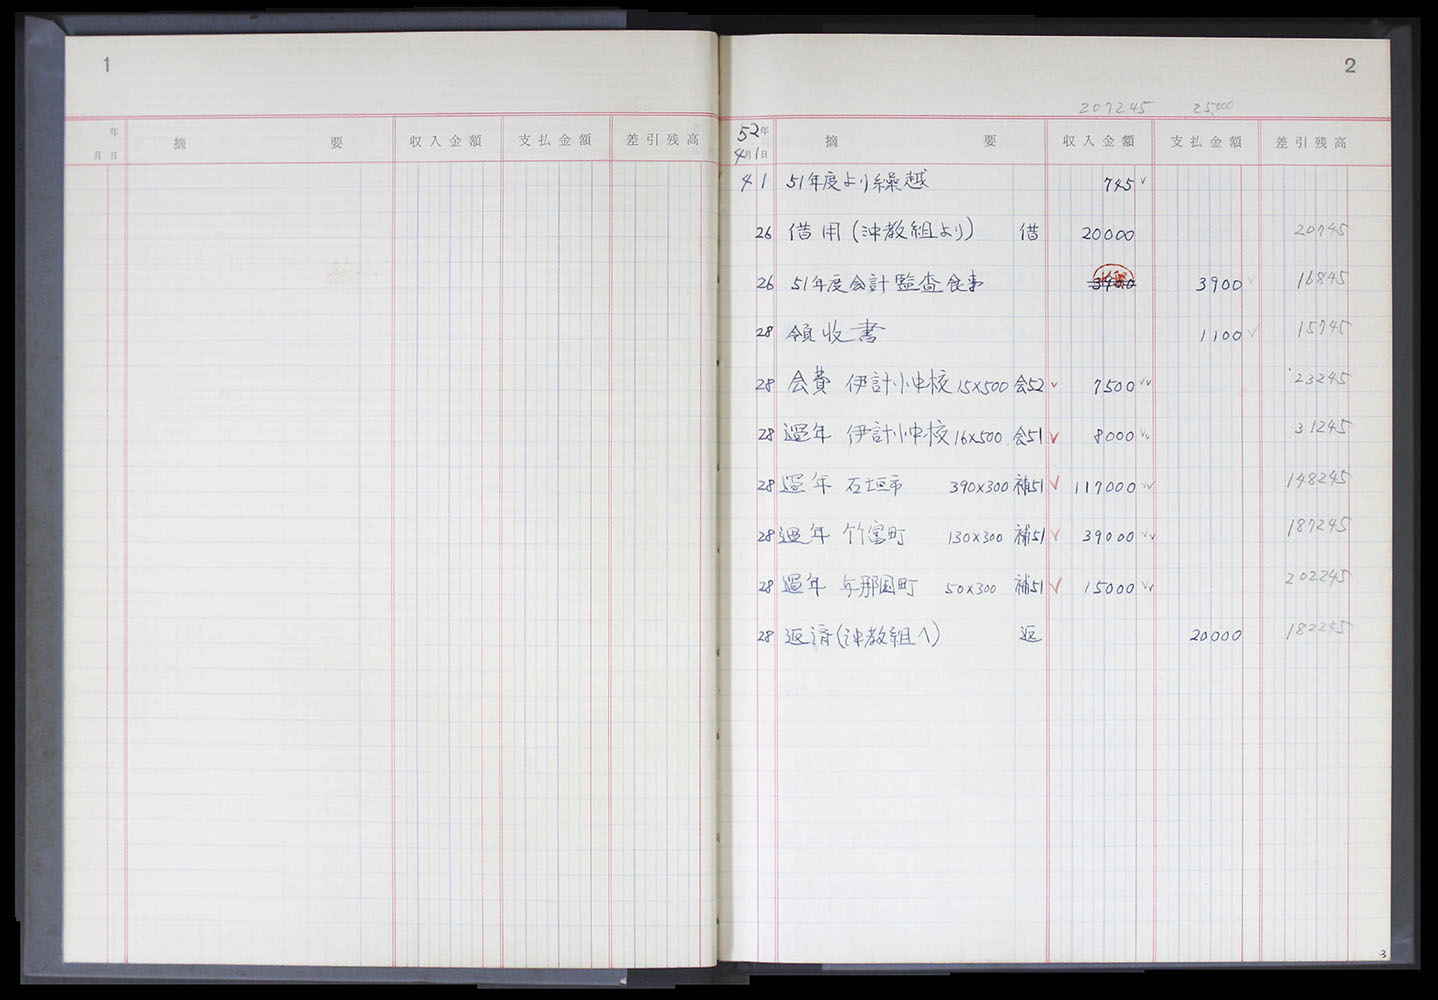 1
年
月 日 摘 要 収入金額 支払金額 差引残高
2
207245 25,000
52年
4月1日 摘 要 収入金額 支払金額 差引残高
4 1 51年度より繰越 745
26 借用(沖教組より) 借 20000 20745
26 51年度会計監査食事 3900 3900 16845
28 領收書 1100 15745
28 会費 伊計小中校 15×500 会52 7500 23245
28 過年 伊計小中校 16×500 会51 8000 31245
28 過年 石垣市 390×300 補51 117000 148245
28 過年 竹富町 130×300 補51 39000 187245
28 過年 与那国町 50×300 補51 15000 202245
28 返済(沖教組へ) 返 20000 182245
3